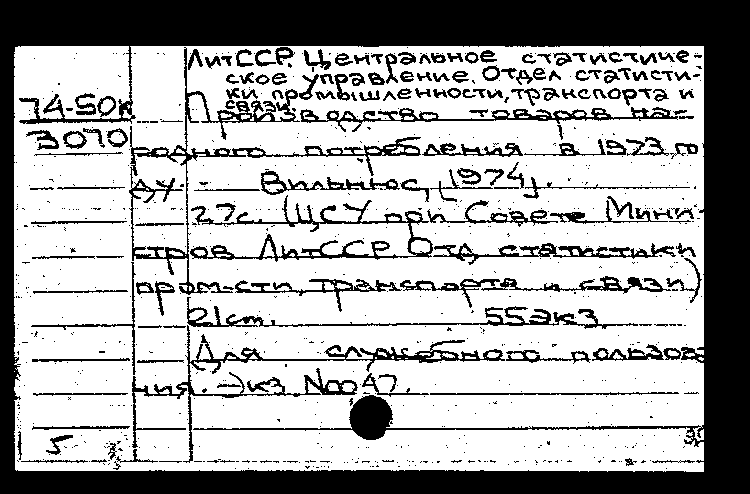 ЛитССР. Центральное статистиче-
ское управление. Отдел статисти-
ки промышленности, транспорта и
связи.
74-50к
3070
Производство товаров на-
родного потребления в 1973 го
ду. - Вильнюс, [1974].
27с. (ЦСУ при Совете Мини-
стров ЛитССР. Отд. статистики
пром-сти, транспорта и связи)
21 cm. 55экз.
Для служебного пользова
ния. - Экз. №0047.
5